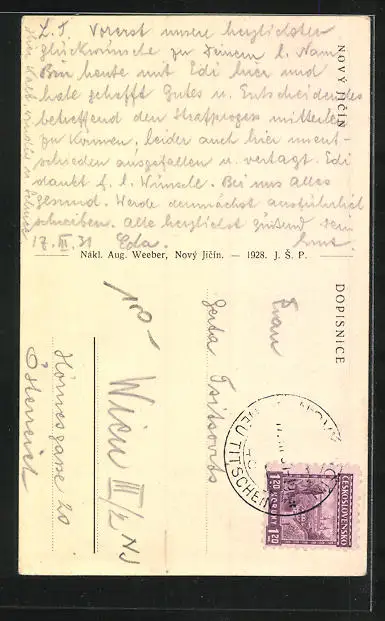 L. T. Vorerst unsere herzlichsten
Glückwünsche zu Deinem l. Nam.
Bin heute mit Edi hier und
habe gehofft Gutes u. Entscheidendes
betreffend den Strafprozess mitteilen
zu können; leider auch hier unent-
schieden ausgefallen u. vertagt. Edi
dankt f. l. Wünsche. Bei uns alles
gesund. Werde demnächst ausführlich
schreiben. Alle herzlichst grüßend Dein
17. III. 31 Ernst.
NOVÝ JIČÍN
Nákl. Aug. Weeber, Nový Jičín. — 1928. J. Š. P.
DOPISNICE
Frau
Wien III/2
Hörnesgasse 20
Österreich
NEUTITSCHEIN
ČESKOSLOVENSKO
1.20 KORUNY 1.20